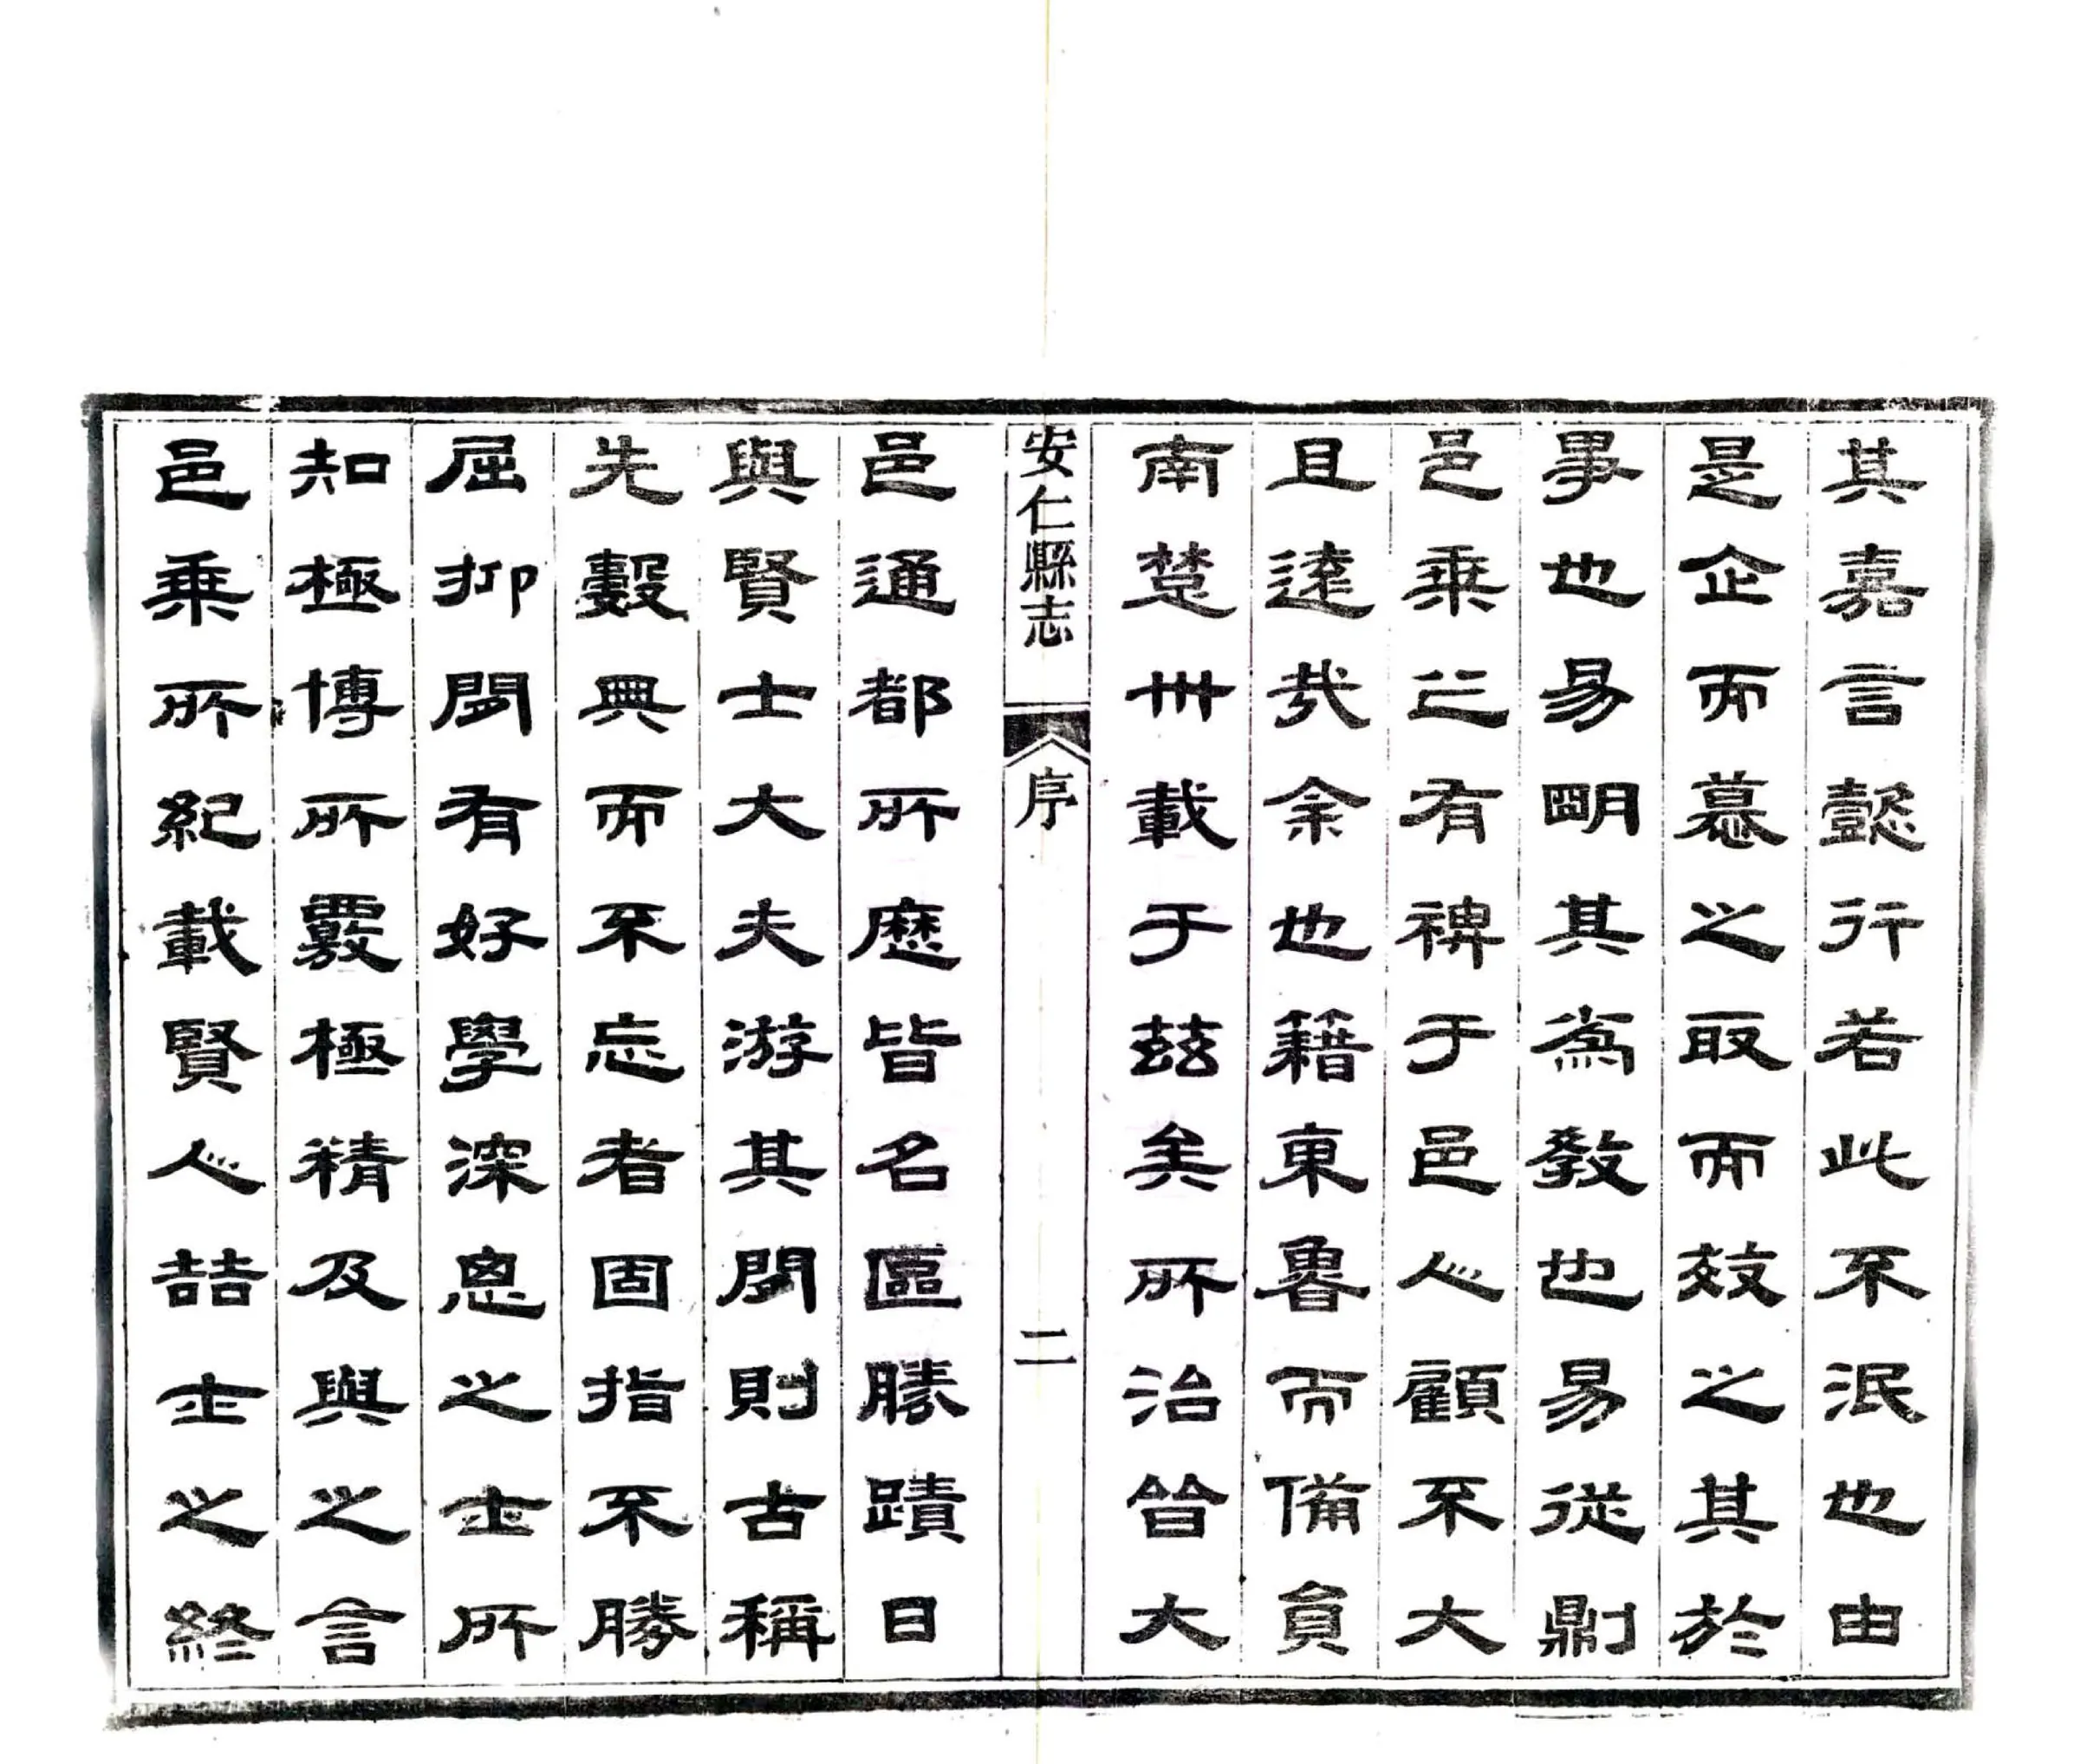 其嘉言懿行若此不泯也由
是企而慕之取而效之其於
事也易明其為教也易從則
邑乘之有裨于邑人顧不大
且遠哉余也籍東魯而備員
南楚卅載于茲矣所治皆大
安仁縣志
序
二
邑通都所歷皆名區勝蹟日
與賢士大夫游其間則古稱
先數典而不忘者固指不勝
屈抑聞有好學深思之士所
知極博所覈極精及與之言
邑乘所紀載賢人喆士之終